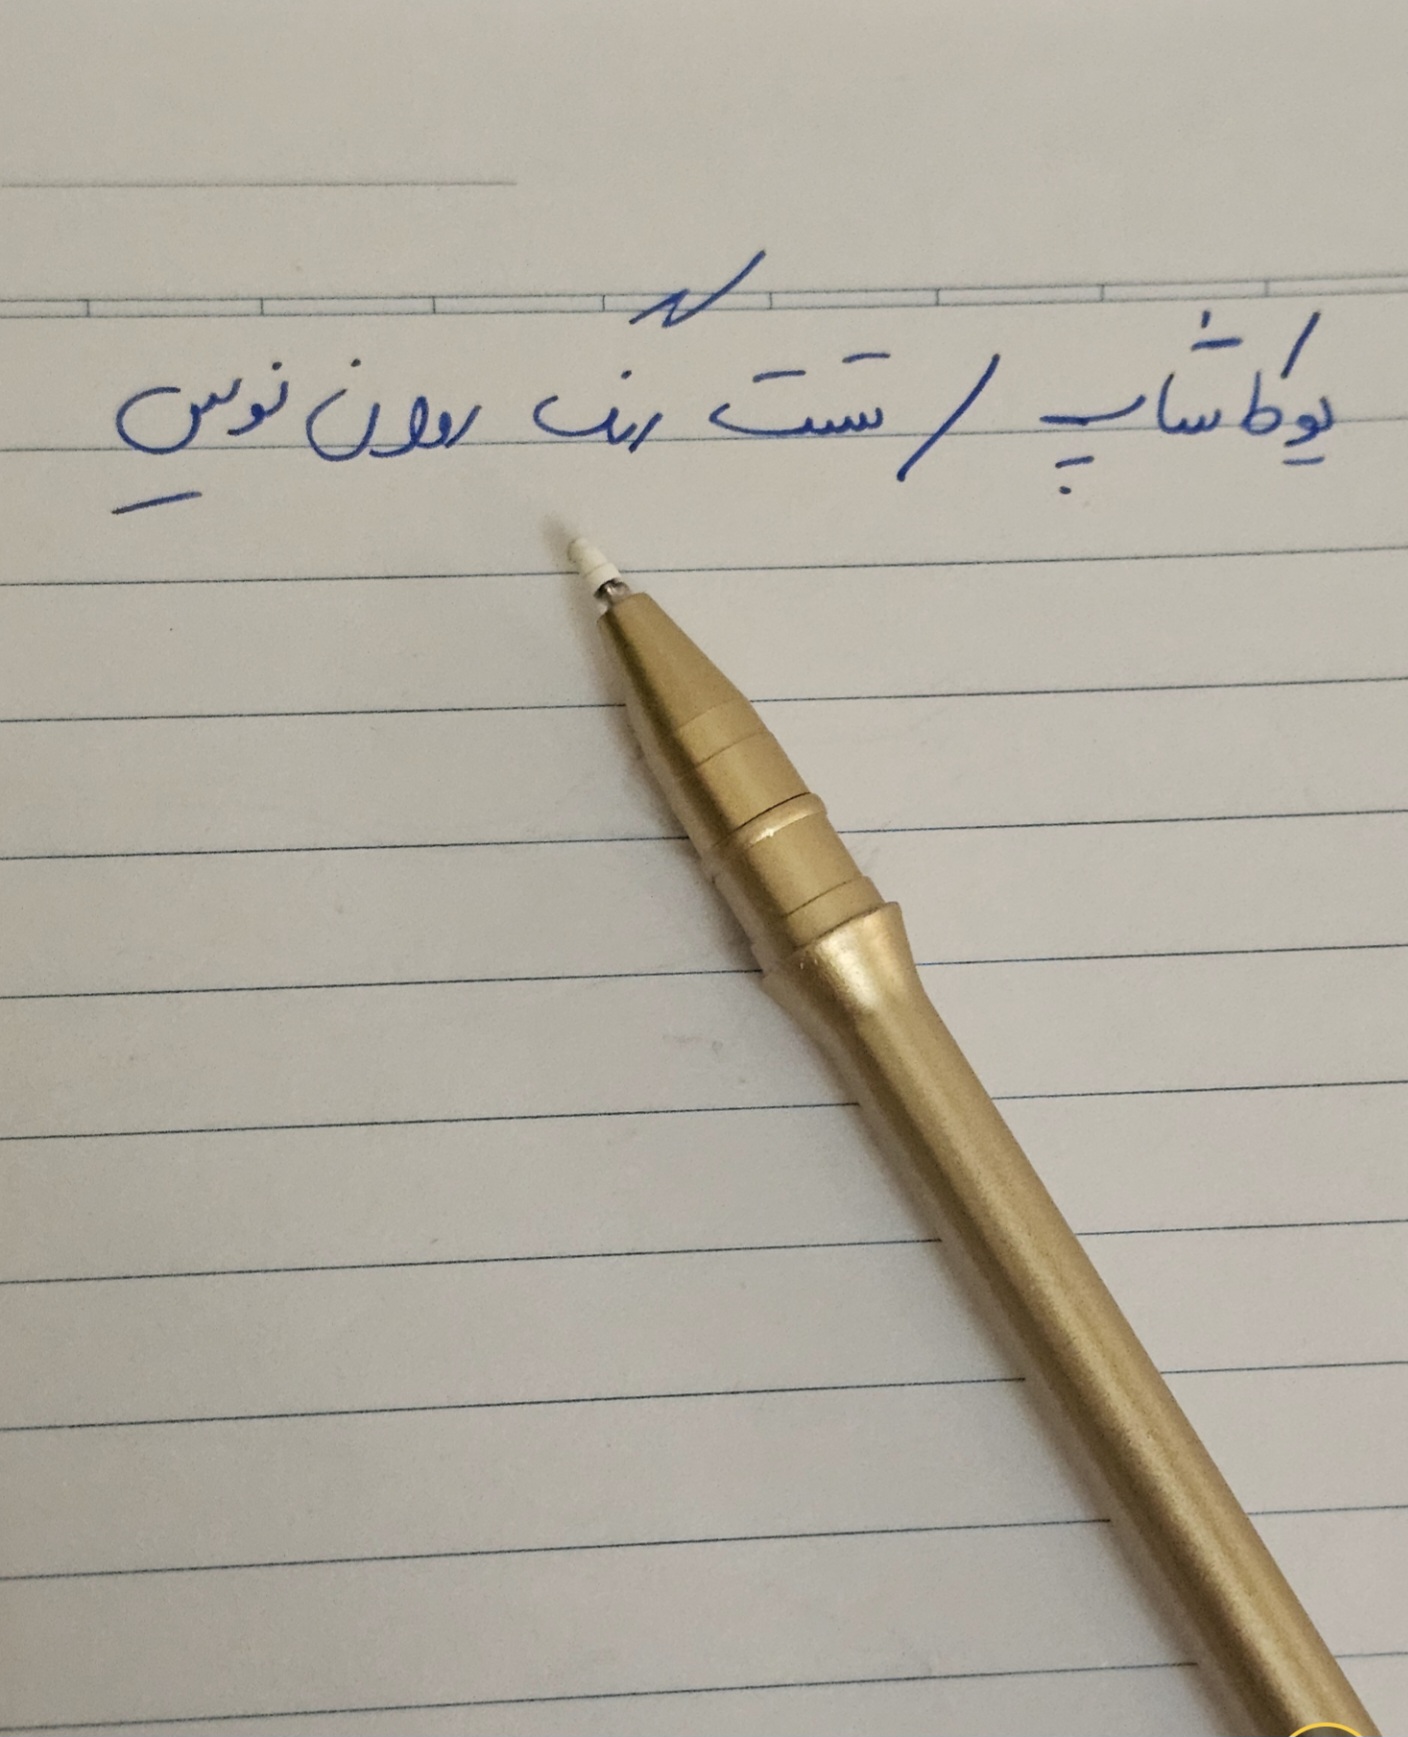 یوکا شاپ / تست رنگ روان نویس